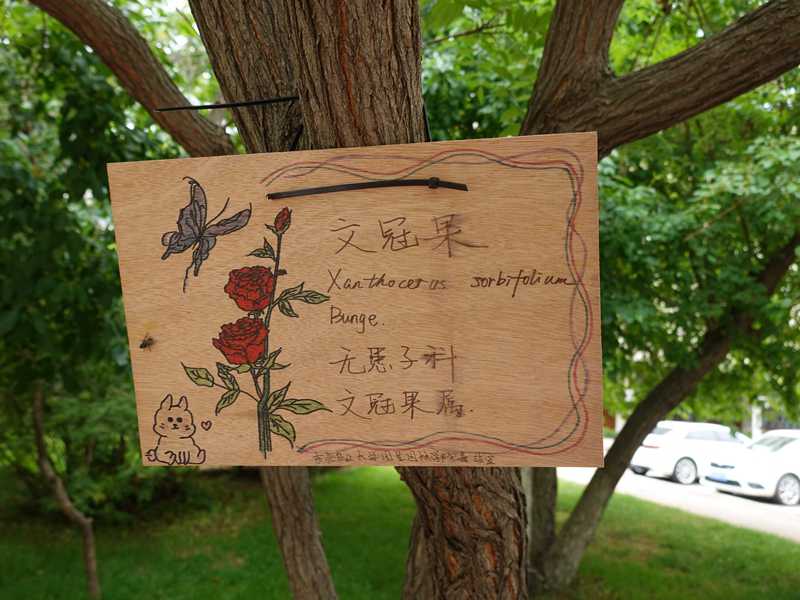 文冠果
Xanthocerus sorbifolium
Bunge.
无患子科
文冠果属.